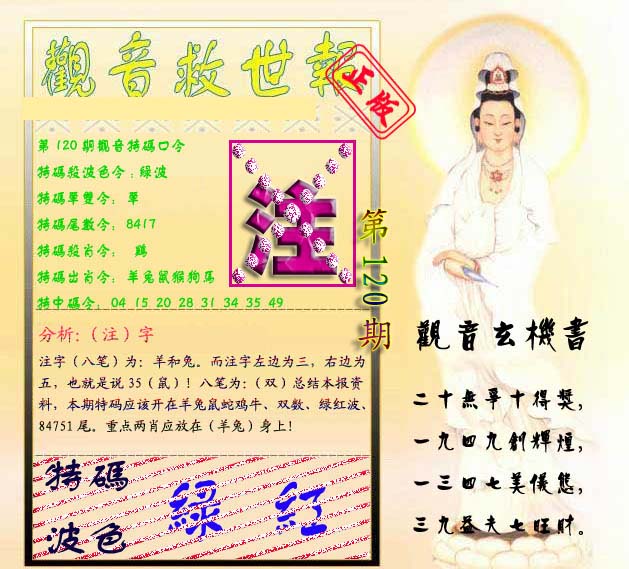 觀音救世報
正版
第120期觀音特碼口令
特碼殺波色令：綠波
特碼單雙令： 單
特碼尾數令： 8417
特碼殺肖令： 鷄
特碼出肖令： 羊兔鼠猴狗馬
特中碼令： 04 15 20 28 31 34 35 49
注
第120期
分析:（注）字
注字（八笔）为：羊和兔。而注字左边为三，右边为
五，也就是说35（鼠）！八笔为：（双）总结本报资
料，本期特码应该开在羊兔鼠蛇鸡牛、双数、绿红波、
84751尾。重点两肖应放在（羊兔）身上!
特碼
波色
綠 紅
觀音玄機書
二十無爭十得獎，
一九四九創輝煌，
一三四七美儀態，
三九益夫七旺財。